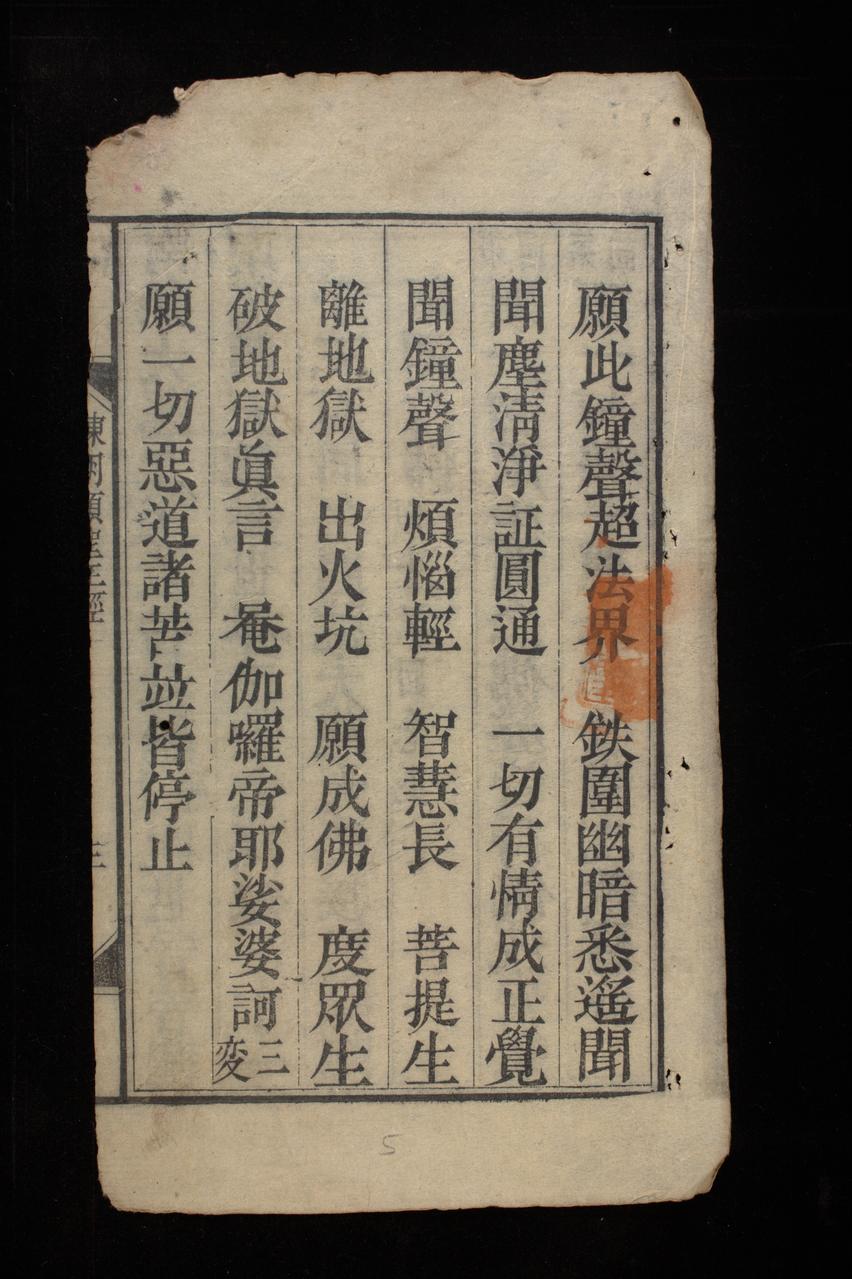 願此鐘聲超法界 鉄圍幽暗悉遙聞
聞塵淸淨証圓通 一切有情成正覺
聞鐘聲 煩惱輕 智慧長 菩提生
離地獄 出火坑 願成佛 度眾生
破地獄眞言 唵伽囉帝耶娑婆訶三変
願一切惡道諸苦並皆停止
三
5